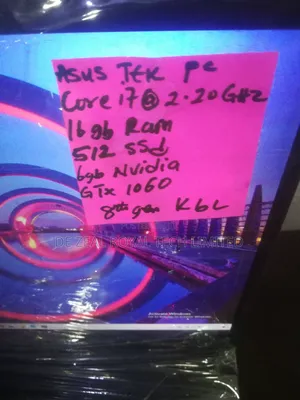 ASUS TEK PC
Core i7@ 2.20GHz
16gb Ram
512 SSd
6gb Nvidia
GTX 1060
8th gen KbL
Activate Windows